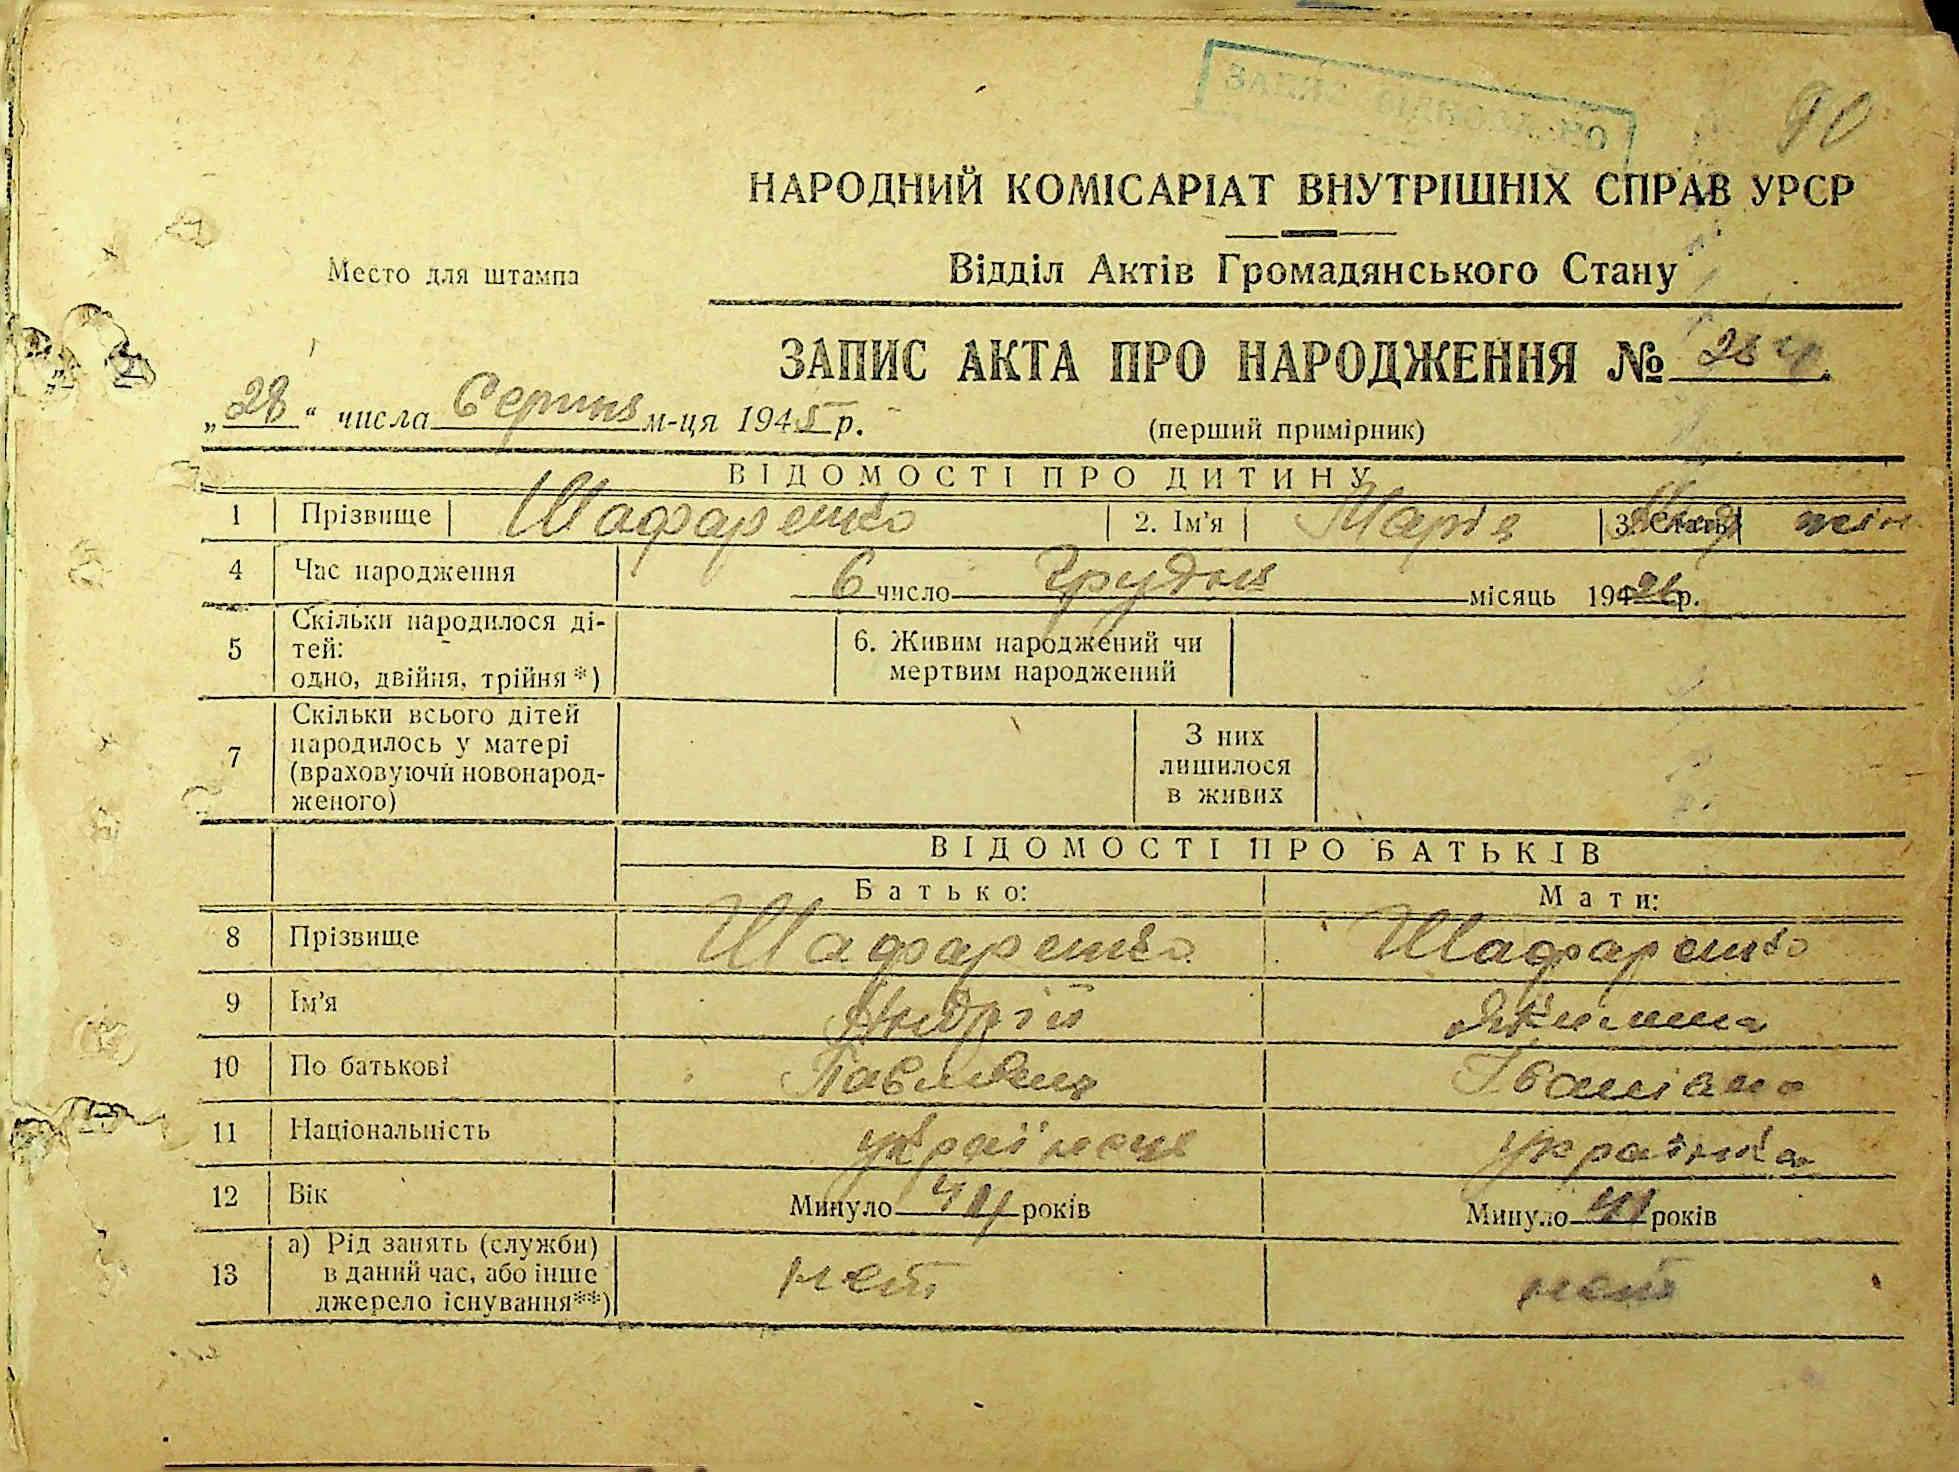 90
НАРОДНИЙ КОМІСАРІАТ ВНУТРІШНІХ СПРАВ УРСР
Место для штампа
Відділ Актів Громадянського Стану
ЗАПИС АКТА ПРО НАРОДЖЕННЯ № 284
„28“ числа Серпня м-ця 1945 р.
(перший примірник)
ВІДОМОСТІ ПРО ДИТИНУ
1 Прізвище Шафаренко 2. Ім'я Марія 3. Стать жін
4 Час народження 6 число Грудня місяць 1926 р.
5 Скільки народилося ді-
тей:
одно, двійня, трійня*)
6. Живим народжений чи
мертвим народжений
7 Скільки всього дітей
народилось у матері
(враховуючи новонарод-
женого)
З них
лишилося
в живих
ВІДОМОСТІ ПРО БАТЬКІВ
Батько: Мати:
8 Прізвище Шафаренко Шафаренко
9 Ім'я Андрій Якилина
10 По батькові Павлович Іванівна
11 Національність українець українка
12 Вік Минуло 41 років Минуло 41 років
13 а) Рід занять (служби)
в даний час, або інше
джерело існування**)
нет нет